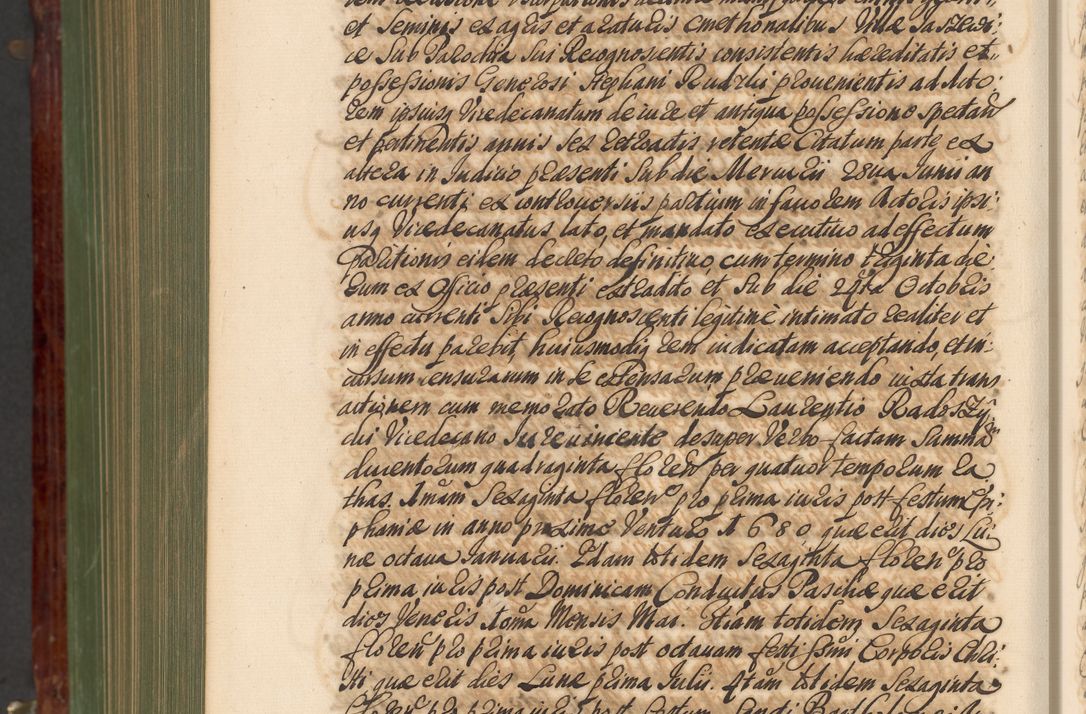 et Seminis ex agris et araturis cmethonalibus Villæ
ce Sub Parochia Sui Recognoscentis consistentis hæreditatis et
possessionis Generosi Stephani prouenientis ad Acto:
rem ipsiusq Vicedecanatum de iure et antiqua possessione spectan
et pertinentis annis Sex retroactis retentæ Citatum parte ex
altera in Iudicio præsenti Sub die Mercurii 28ua Iunii an
no currenti ex controuersiis partium in fauorem Actoris ipsi:
usq Vicedecanatus lato, et mandato executiuo ad effectum
Paritionis eidem decreto definitiuo, cum termino triginta die:
rum ex Officio præsenti extradito et Sub die 24ta Octobris
anno currenti Sibi Recognoscenti legitimè intimato realiter et
in effectu parebit, huiusmodiq rem iudicatam acceptando, et in:
cursum censurarum in se expensarum præueniendo iuxta trans
actionem cum memorato Reuerendo Laurentio Radoszy
cki Vicedecano Iure uincente desuper Verbo factam Summã
ducentorum quadraginta floren per quatuor temporum ra
thas. Imam Sexaginta floren pro prima iuris post festum Epi:
phaniæ in anno proximo Venturo 1680, quæ erit dies Lu:
næ octaua Ianuarii. IIdam totidem Sexaginta floren pro
prima iuris post Dominicam Conductus Paschæ quæ erit
dies Veneris Mensis Mai. IIItiam totidem Sexaginta
floren pro prima iuris post octauam festi SSmi Corporis Chri:
sti quæ erit dies Lunæ prima Iulii. 4tam totidem Sexaginta